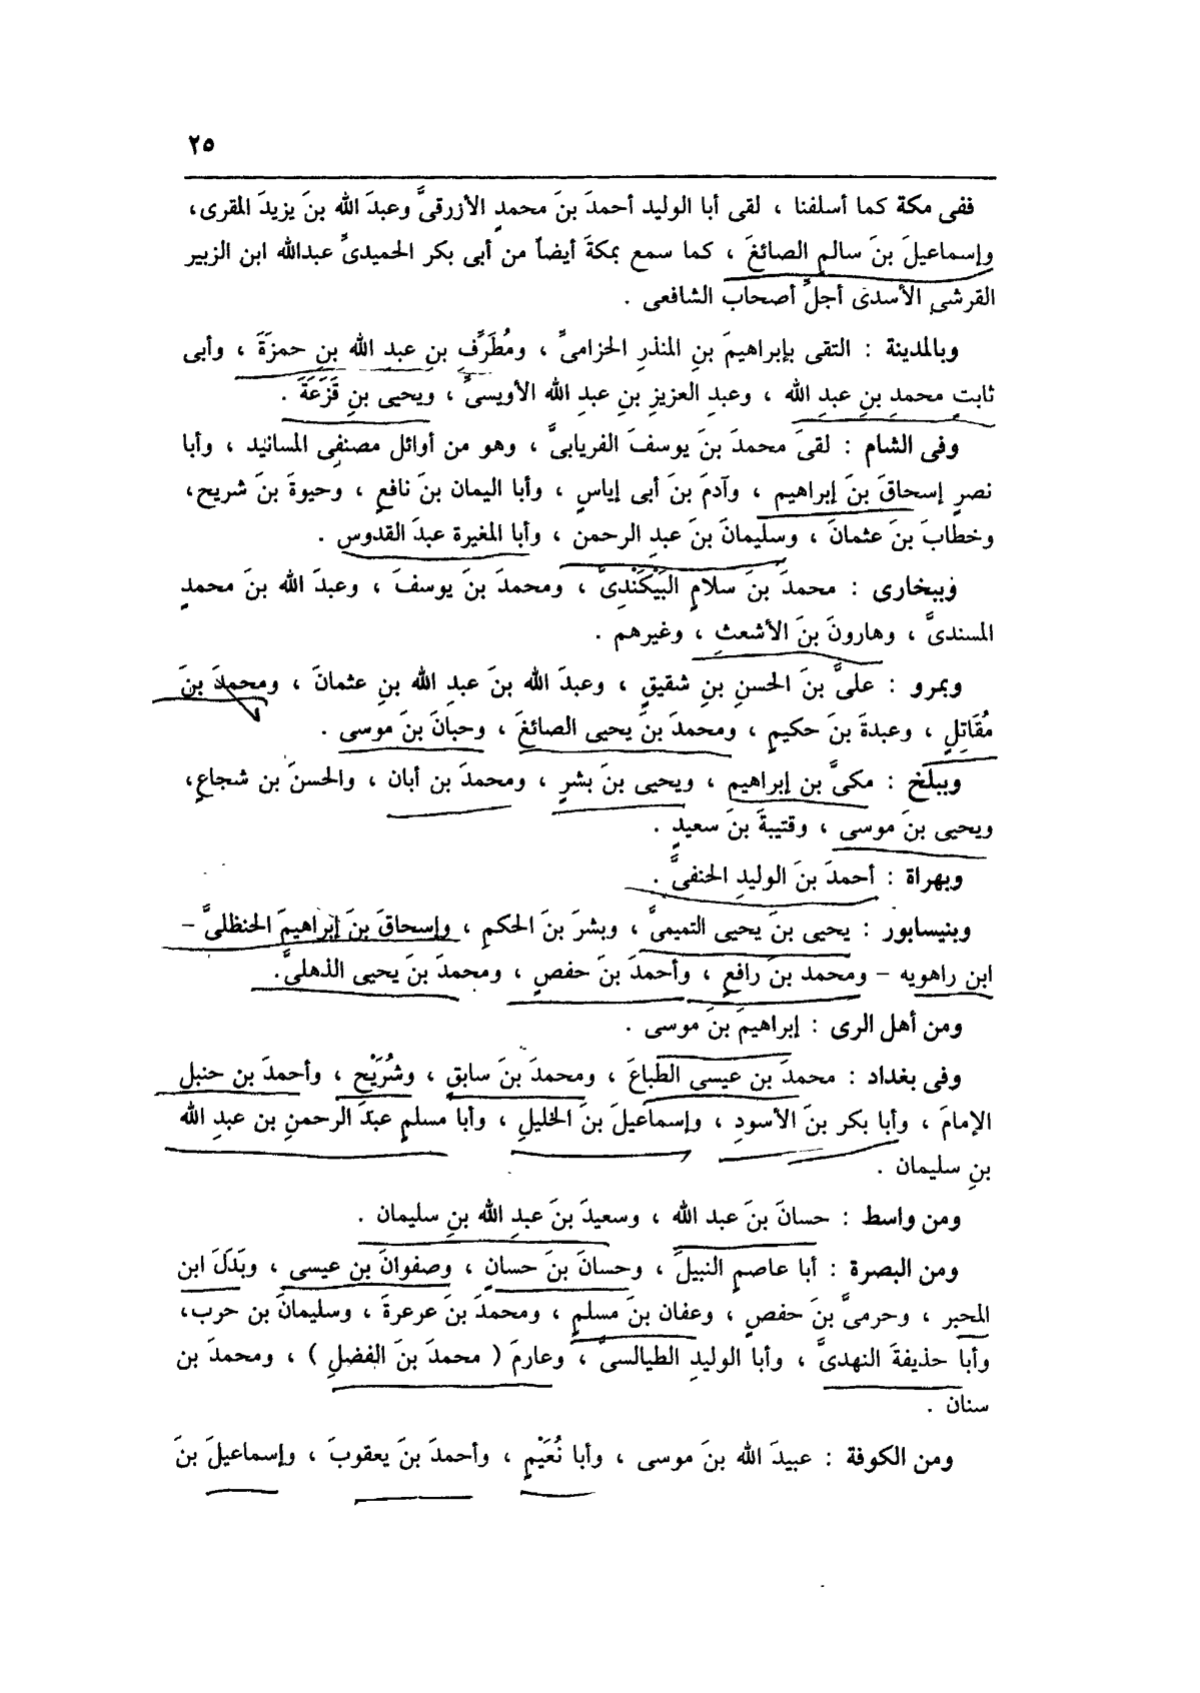 ٢٥
ففى مكة كما أسلفنا ، لقى أبا الوليد أحمدَ بنَ محمدٍ الأزرقىَّ وعبدَ الله بنَ يزيدَ المقرى،
وإسماعيلَ بنَ سالمٍ الصائغَ ، كما سمع بمكةَ أيضاً من أبى بكر الحميدىِّ عبدالله ابن الزبير
القرشى الأسدى أجلِّ أصحاب الشافعى .
وبالمدينة : التقى بإبراهيمَ بنِ المنذرِ الحزامىِّ ، ومُطَرِّفِ بنِ عبدِ الله بنِ حمزَةَ ، وأبى
ثابتٍ محمدِ بنِ عبدِ الله ، وعبدِ العزيزِ بنِ عبدِ الله الأويسىِّ ، ويحيى بنِ قَزَعَةَ .
وفى الشام : لقىَ محمدَ بنَ يوسفَ الفريابىَّ ، وهو من أوائل مصنفى المسانيد ، وأبا
نصرٍ إسحاقَ بنَ إبراهيم ، وآدمَ بنَ أبى إياسٍ ، وأبا اليمان بنَ نافعٍ ، وحيوةَ بنَ شريح،
وخطابَ بنَ عثمانَ ، وسليمانَ بنَ عبدِ الرحمن ، وأبا المغيرة عبدَ القدوسِ .
وببخارى : محمدَ بنَ سلامٍ البَيْكَنْدِىَّ ، ومحمدَ بنَ يوسفَ ، وعبدَ الله بنَ محمدٍ
المسندىَّ ، وهارونَ بنَ الأشعثِ ، وغيرهم .
وبمرو : علىَّ بنَ الحسنِ بنِ شقيقٍ ، وعبدَ الله بنَ عبدِ الله بنِ عثمانَ ، ومحمدَ بنَ
مُقَاتِلٍ ، وعبدةَ بنَ حكيمٍ ، ومحمدَ بنَ يحيى الصائغَ ، وحبانَ بنَ موسى .
وببلخ : مكىَّ بن إبراهيم ، ويحيى بنَ بشرٍ ، ومحمدَ بن أبان ، والحسنَ بن شجاعٍ،
ويحيى بنَ موسى ، وقتيبةَ بنَ سعيدٍ .
وبهراة : أحمدَ بنَ الوليدِ الحنفىَّ .
وبنيسابور : يحيى بنَ يحيى التميمىَّ ، وبشرَ بنَ الحكمِ ، وإسحاقَ بنَ إبراهيمَ الحنظلىَّ –
ابن راهويه – ومحمد بنَ رافعٍ ، وأحمدَ بنَ حفصٍ ، ومحمدَ بنَ يحيى الذهلىَّ .
ومن أهل الرى : إبراهيمَ بنَ موسى .
وفى بغداد : محمدَ بن عيسى الطباعَ ، ومحمدَ بنَ سابقٍ ، وشُرَيْح ، وأحمدَ بن حنبل
الإمامَ ، وأبا بكر بنَ الأسودِ ، وإسماعيلَ بنَ الخليلِ ، وأبا مسلمٍ عبدَ الرحمنِ بن عبدِ الله
بنِ سليمان .
ومن واسط : حسانَ بنَ عبد الله ، وسعيدَ بنَ عبدِ الله بنِ سليمان .
ومن البصرة : أبا عاصمٍ النبيلَ ، وحسانَ بنَ حسانٍ ، وصفوانَ بن عيسى ، وبَدَلَ ابن
المحبر ، وحرمىَّ بنَ حفصٍ ، وعفان بنَ مسلمٍ ، ومحمدَ بنَ عرعرةَ ، وسليمانَ بن حرب،
وأبا حذيفةَ النهدىَّ ، وأبا الوليدِ الطيالسىَّ ، وعارمَ ( محمدَ بنَ الفضلِ ) ، ومحمدَ بن
سنان .
ومن الكوفة : عبيدَ الله بنَ موسى ، وأبا نُعَيْمٍ ، وأحمدَ بنَ يعقوبَ ، وإسماعيلَ بنَ